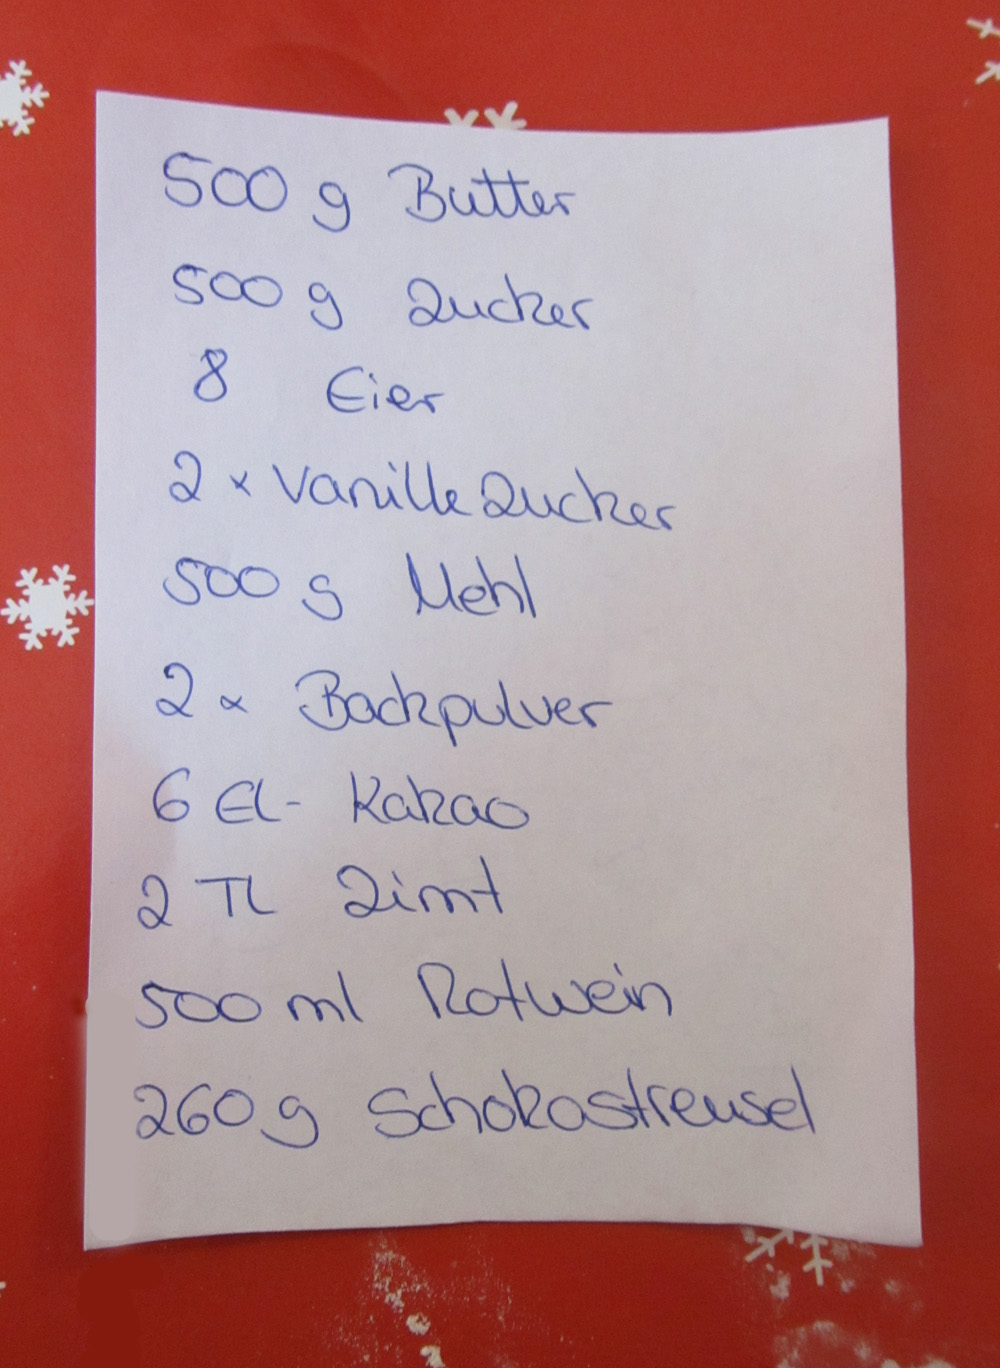 500 g Butter
500 g Zucker
8 Eier
2 x Vanillezucker
500 g Mehl
2 x Backpulver
6 EL - Kakao
2 TL Zimt
500 ml Rotwein
260 g Schokostreusel